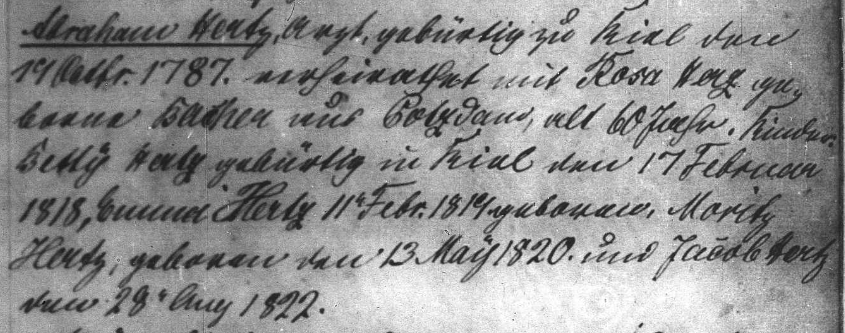 Abraham Hertz, Arzt, gebürtig zu Kiel den
19 Octbr. 1787. verheirathet mit Rosa Herz ge,
borne aus Potzdam, alt 60 Jahr. Kinder.
Betty Hertz gebürtig in Kiel den 17 Februar
1818, Hertz 11t Febr. 1819. geboren, Moritz
Hertz, geboren den 13 Maÿ 1820. und Jacob Hertz
den 28t Aug 1822.